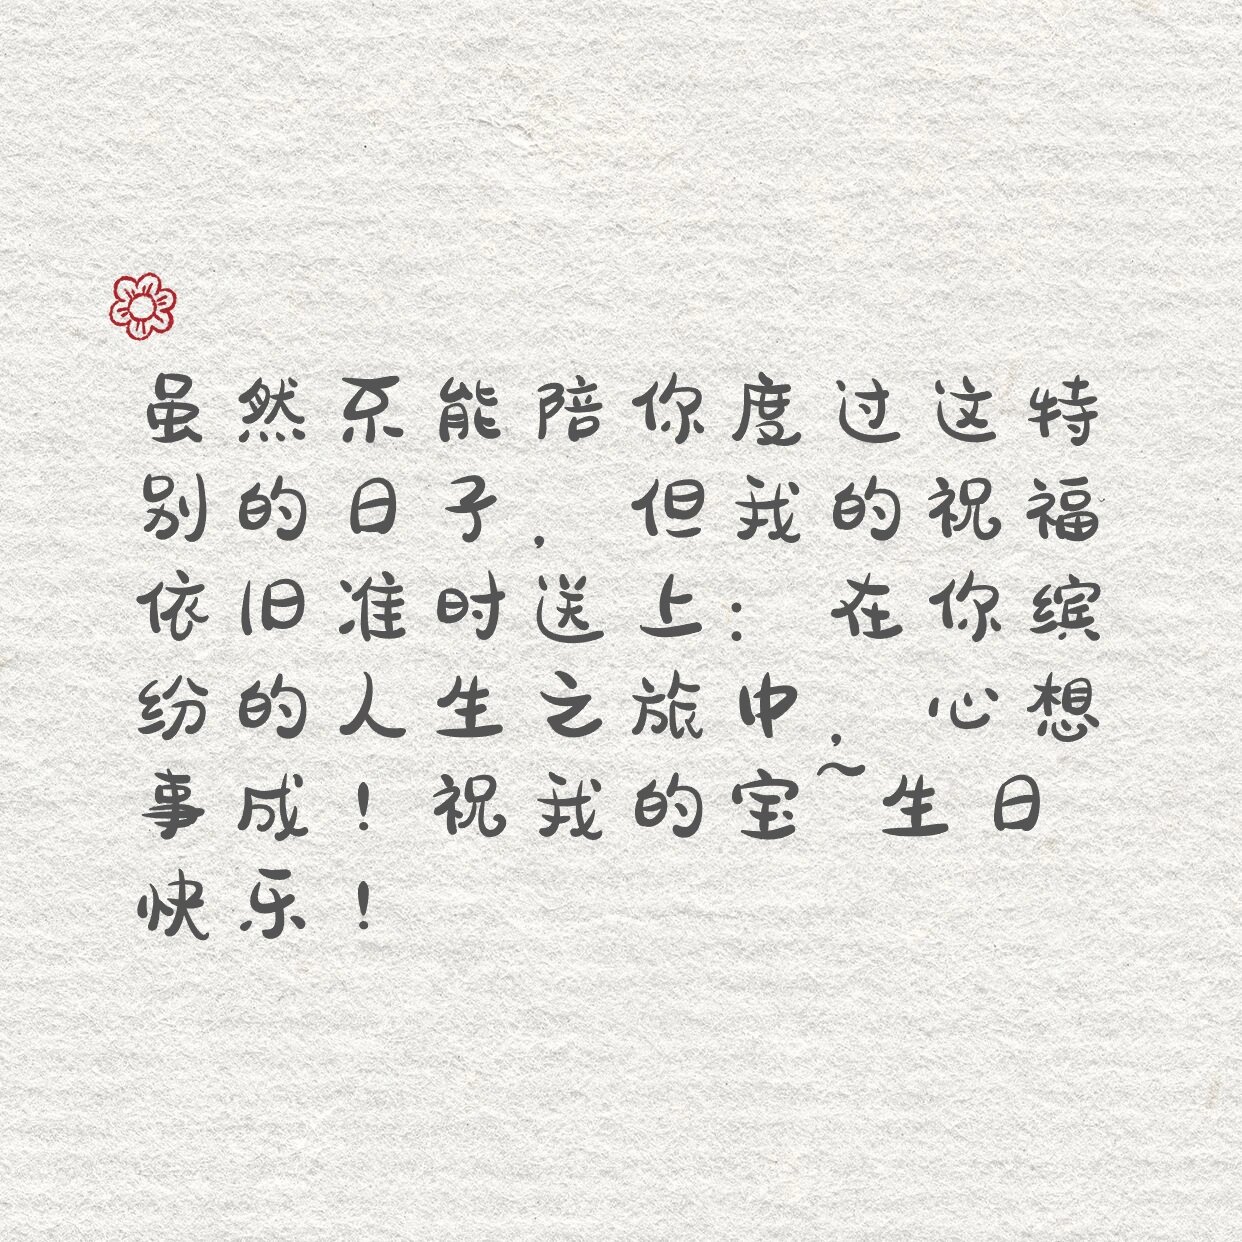 虽然不能陪你度过这特
别的日子，但我的祝福
依旧准时送上：在你缤
纷的人生之旅中，心想
事成！祝我的宝~生日
快乐！